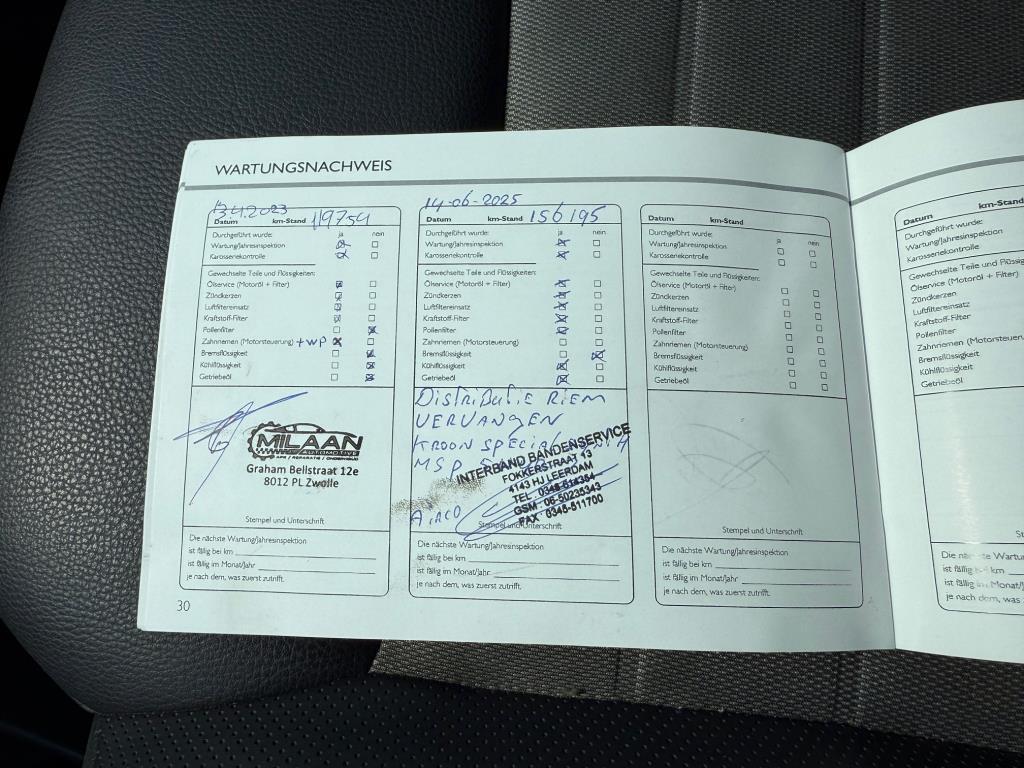 WARTUNGSNACHWEIS
13.4.2023
119754
Datum km-Stand
Durchgeführt wurde: ja nein
Wartung/Jahresinspektion
Karosseriekontrolle
Gewechselte Teile und Flüssigkeiten:
Ölservice (Motoröl + Filter)
Zündkerzen
Luftfiltereinsatz
Kraftstoff-Filter
Pollenfilter
Zahnriemen (Motorsteuerung) + WP
Bremsflüssigkeit
Kühlflüssigkeit
Getriebeöl
MILAAN
AUTOMOTIVE
APK / REPARATIE / ONDERHOUD
Graham Bellstraat 12e
8012 PL Zwolle
Stempel und Unterschrift
Die nächste Wartung/Jahresinspektion
ist fällig bei km
ist fällig im Monat/Jahr
je nach dem, was zuerst zutrifft.
30
14-06-2025
Datum km-Stand 156195
Durchgeführt wurde: ja nein
Wartung/Jahresinspektion
Karosseriekontrolle
Gewechselte Teile und Flüssigkeiten:
Ölservice (Motoröl + Filter)
Zündkerzen
Luftfiltereinsatz
Kraftstoff-Filter
Pollenfilter
Zahnriemen (Motorsteuerung)
Bremsflüssigkeit
Kühlflüssigkeit
Getriebeöl
DISTRIBUTIE RIEM
VERVANGEN
KROON SPECIAL
MSP
AIRCO
INTERBAND BANDENSERVICE
FOKKERSTRAAT 13
4143 HJ LEERDAM
TEL.
GSM : 06-50235343
FAX : 0345-611700
Stempel und Unterschrift
Die nächste Wartung/Jahresinspektion
ist fällig bei km
ist fällig im Monat/Jahr
je nach dem, was zuerst zutrifft.
Datum km-Stand
Durchgeführt wurde: ja nein
Wartung/Jahresinspektion
Karosseriekontrolle
Gewechselte Teile und Flüssigkeiten:
Ölservice (Motoröl + Filter)
Zündkerzen
Luftfiltereinsatz
Kraftstoff-Filter
Pollenfilter
Zahnriemen (Motorsteuerung)
Bremsflüssigkeit
Kühlflüssigkeit
Getriebeöl
Stempel und Unterschrift
Die nächste Wartung/Jahresinspektion
ist fällig bei km
ist fällig im Monat/Jahr
je nach dem, was zuerst zutrifft.
Datum km-Stand
Durchgeführt wurde:
Wartung/Jahresinspektion
Karosseriekontrolle
Gewechselte Teile und Flüssigkeiten:
Ölservice (Motoröl + Filter)
Zündkerzen
Luftfiltereinsatz
Kraftstoff-Filter
Pollenfilter
Zahnriemen (Motorsteuerun
Bremsflüssigkeit
Kühlflüssigkeit
Getriebeöl
St
Die nächste Wartun
ist fällig bei km
ist fällig im Monat/J
je nach dem, was z